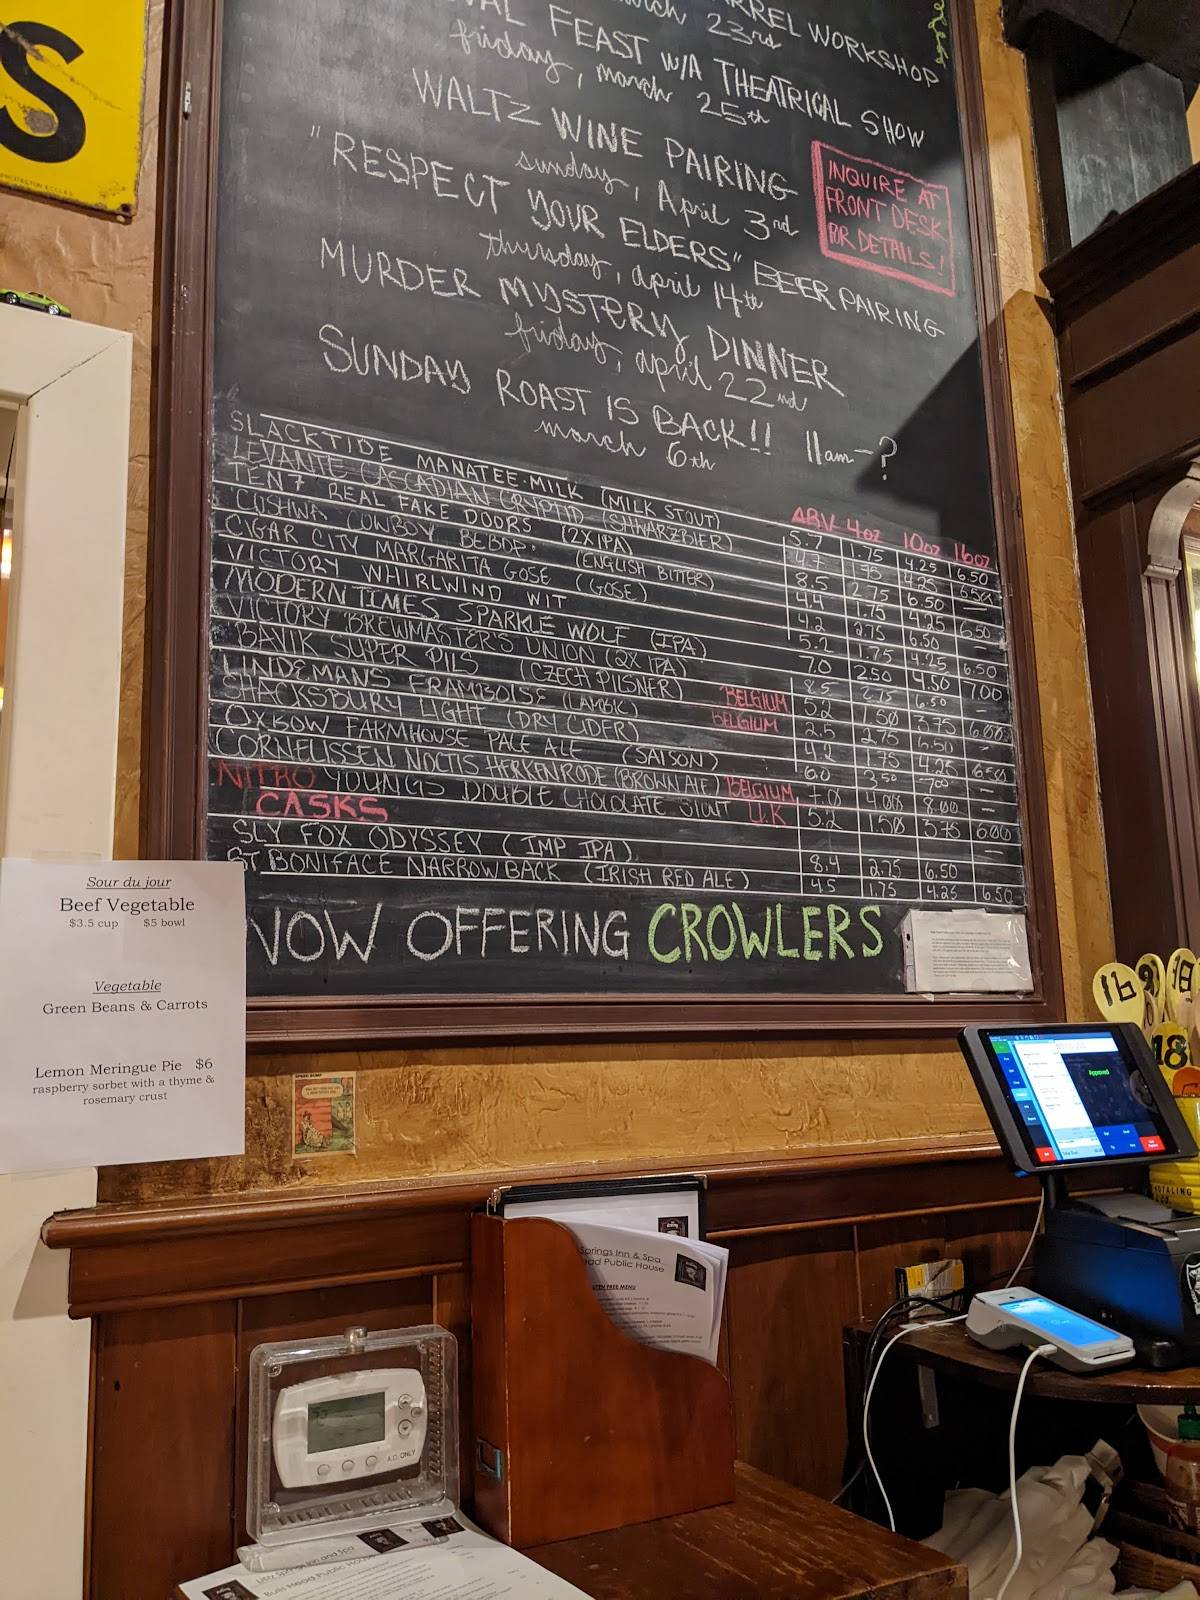 S
WORKSHOP
23rd
FEAST W/A THEATRICAL SHOW
friday, march 25th
WALTZ WINE PAIRING
sunday, April 3rd
INQUIRE AT
FRONT DESK
FOR DETAILS!
"RESPECT YOUR ELDERS" BEER PAIRING
thursday, april 14th
MURDER MYSTERY DINNER
friday, april 22nd
SUNDAY ROAST IS BACK!! 11am-?
march 6th
ABV 4oz 10oz 16oz
SLACKTIDE MANATEE MILK (MILK STOUT) 5.7 1.75 4.25 6.50
LEVANTE CASCADIAN CRYPTID (SHWARZBIER) 4.7 1.75 4.25 6.50
TEN7 REAL FAKE DOORS (2X IPA) 8.5 2.75 6.50 —
CUSHWA COWBOY BEBOP (ENGLISH BITTER) 4.4 1.75 4.25 6.50
CIGAR CITY MARGARITA GOSE (GOSE) 4.2 2.75 6.50 —
VICTORY WHIRLWIND WIT 5.2 1.75 4.25 6.50
MODERN TIMES SPARKLE WOLF (IPA) 7.0 2.50 4.50 7.00
VICTORY BREWMASTER'S UNION (2X IPA) 8.5 2.75 6.50 —
BAVIK SUPER PILS (CZECH PILSNER) BELGIUM 5.2 1.50 3.75 6.00
LINDEMANS FRAMBOISE (LAMBIC) BELGIUM 2.5 2.75 6.50 —
SHACKSBURY LIGHT (DRY CIDER) 4.2 1.75 4.25 6.50
OXBOW FARMHOUSE PALE ALE (SAISON) 6.0 3.50 7.00 —
CORNELISSEN NOCTIS HERKENRODE (BROWN ALE) BELGIUM 7.0 4.00 8.00 —
NITRO YOUNGS DOUBLE CHOCOLATE STOUT U.K 5.2 1.50 3.75 6.00
CASKS
SLY FOX ODYSSEY (IMP IPA) 8.4 2.75 6.50 —
ST BONIFACE NARROWBACK (IRISH RED ALE) 4.5 1.75 4.25 6.50
NOW OFFERING CROWLERS
Sour du jour
Beef Vegetable
$3.5 cup $5 bowl
Vegetable
Green Beans & Carrots
Lemon Meringue Pie $6
raspberry sorbet with a thyme &
rosemary crust
16
18
18
Approved
Springs Inn & Spa
ead Public House
GLUTEN FREE MENU
A.O. ONLY
Lititz Springs Inn and Spa
Bulls Head Public House